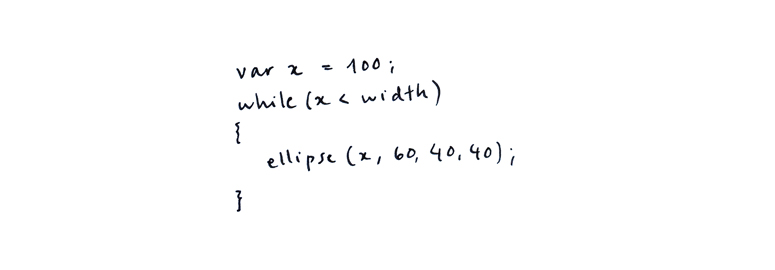 var x = 100;
while (x < width)
{
ellipse (x, 60, 40, 40);
}